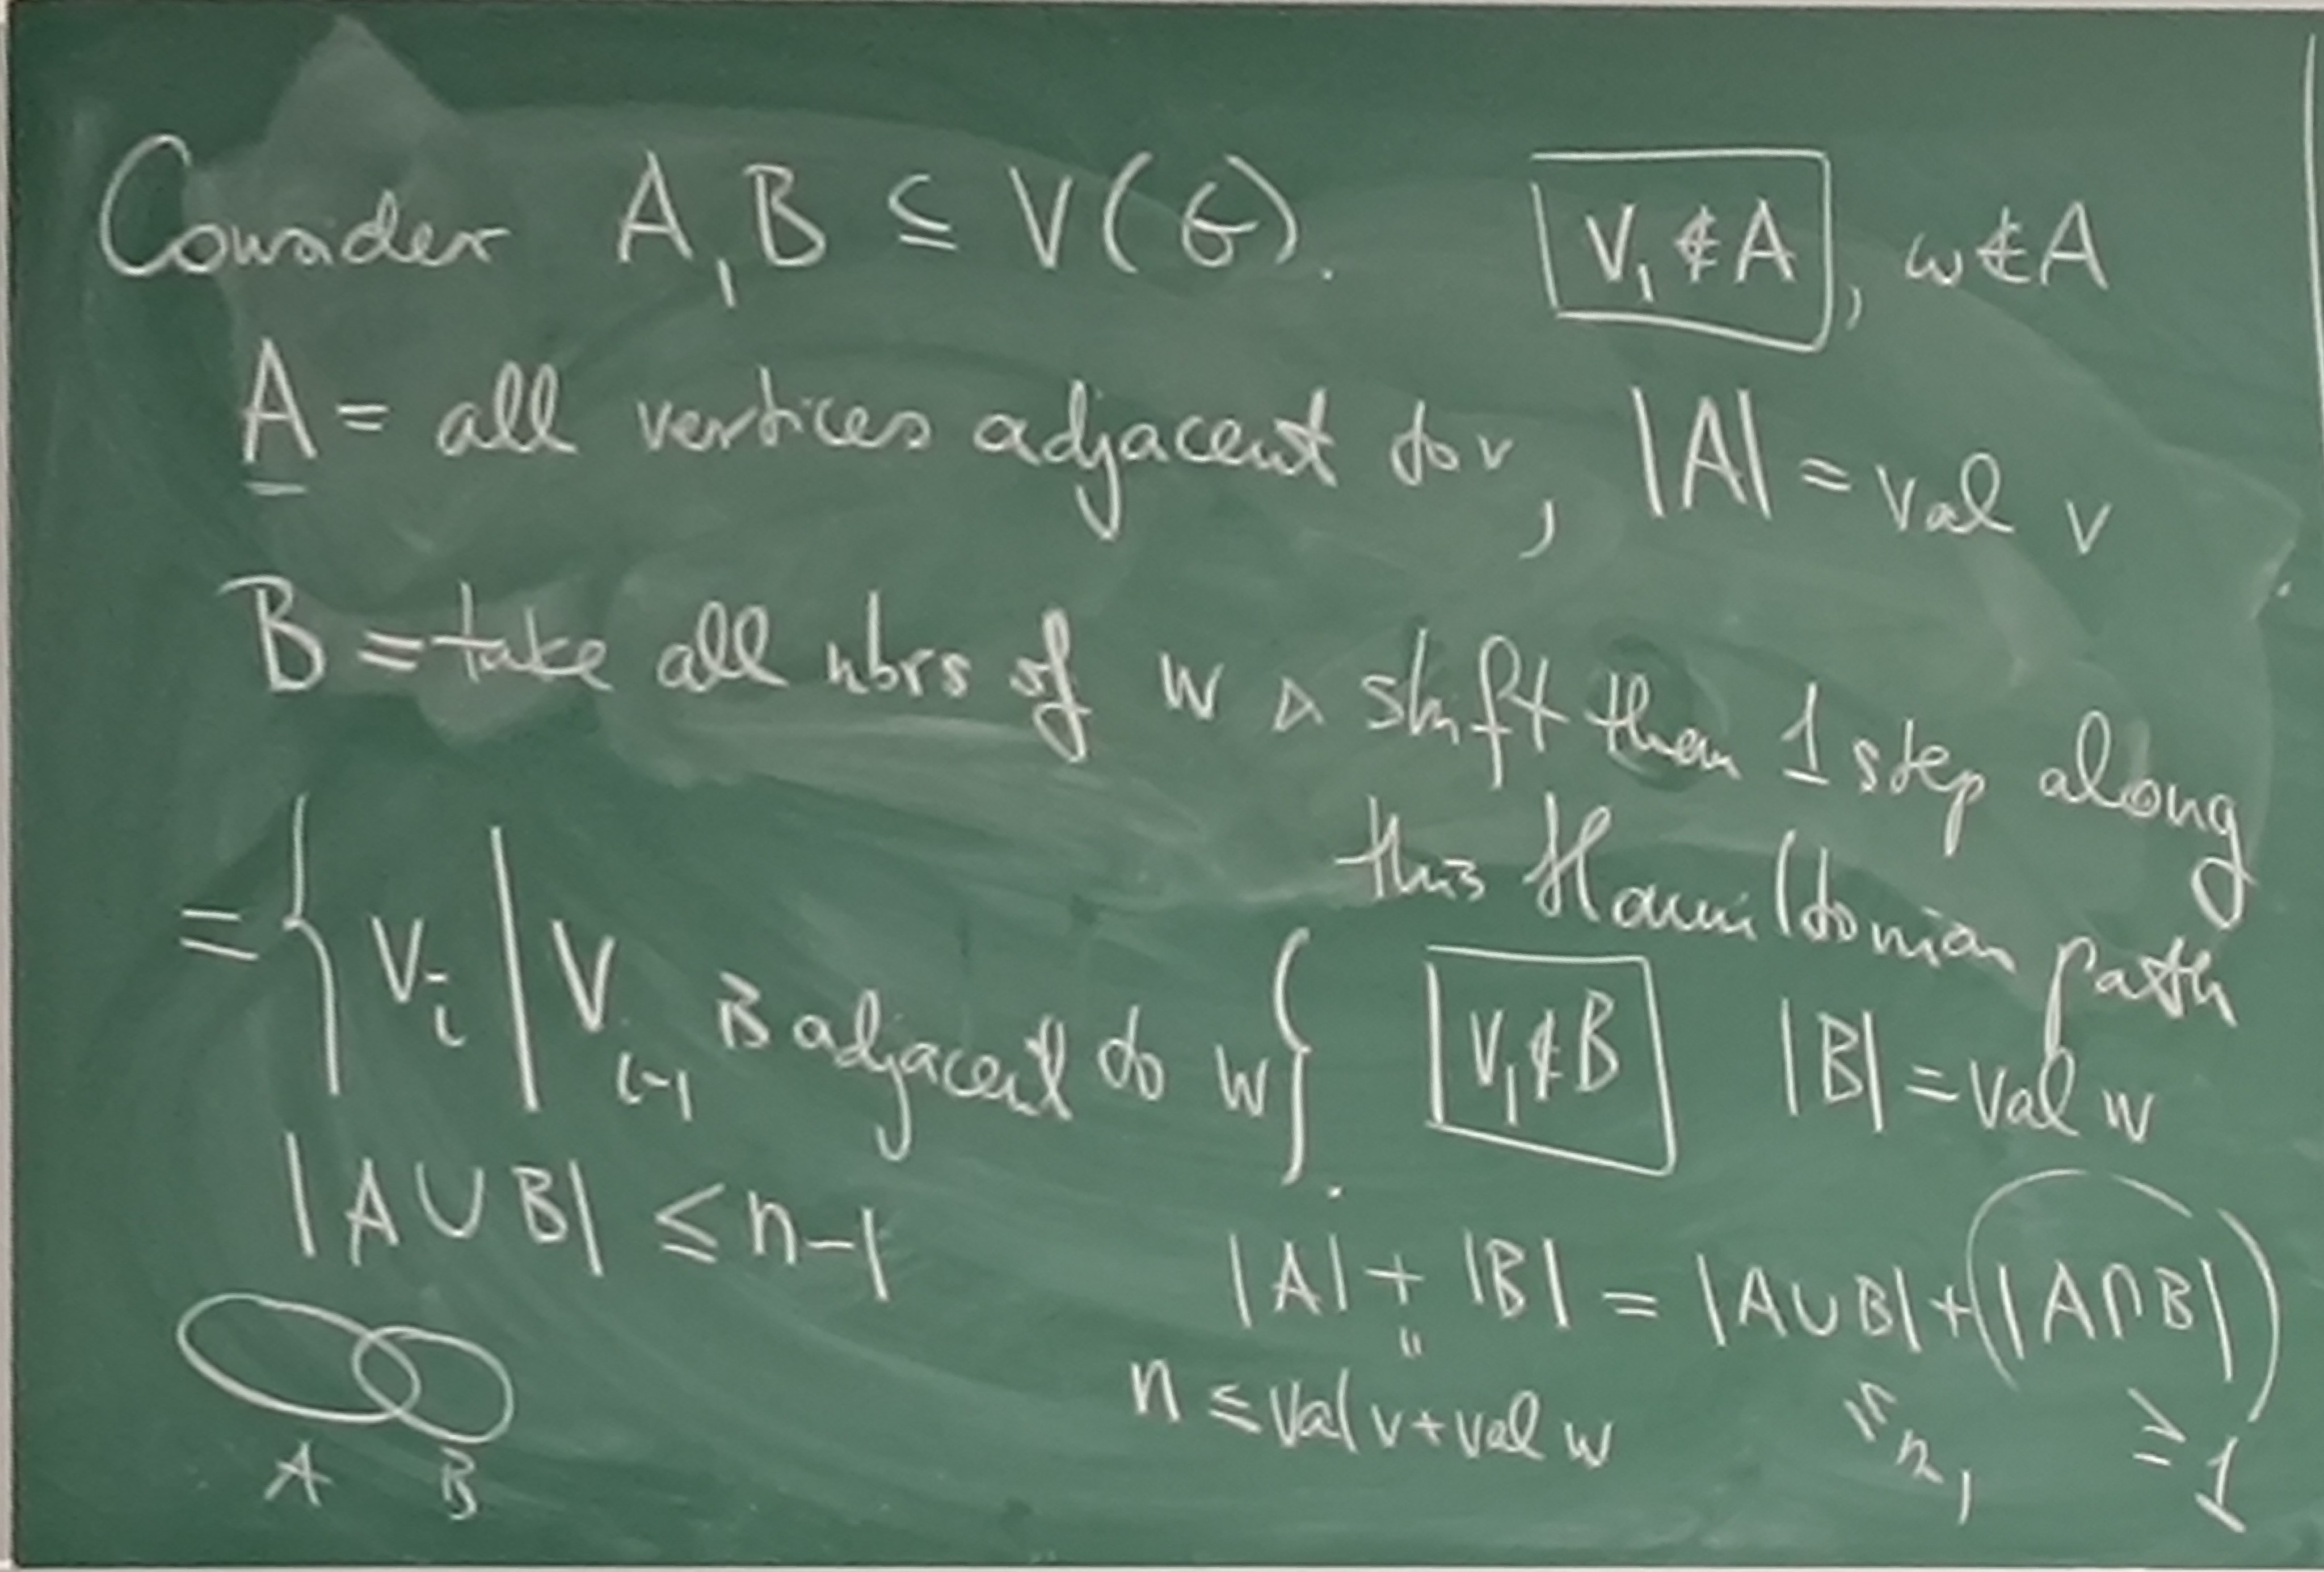 Consider A, B ⊆ V(G). V₁ ∉ A, w ∉ A
A = all vertices adjacent to v, |A| = val v
B = take all nbrs of w & shift them 1 step along
this Hamiltonian path
= { Vᵢ | Vᵢ₋₁ is adjacent to w }. V₁ ∉ B |B| = val w
|A ∪ B| ≤ n-1
|A| + |B| = |A ∪ B| + |A ∩ B|
n ≤ val v + val w ≤ n-1 ≥ 1
A B